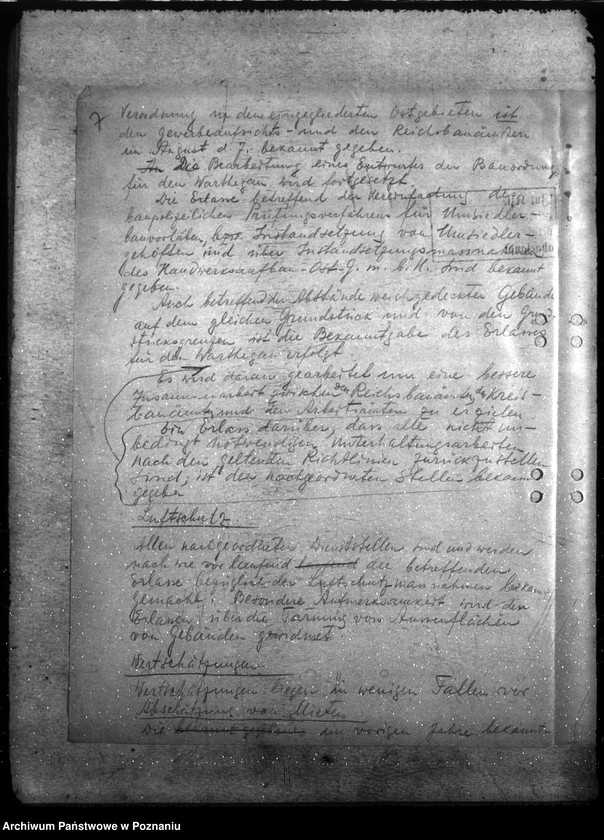 7 Verordnung in den eingegliederten Ostgebieten ist
den Gewerbeaufsichts- und den Reichsbauämtern
im August d. J. bekannt gegeben.
In Die Bearbeitung eines Entwurfes der Bauordnung
für den Warthegau wird fortgesetzt.
Die Erlasse betreffend der Vereinfachung des
baupolizeilichen Prüfungsverfahrens für Umsiedler-
bauvorhaben, bzw. Instandsetzung von Umsiedler-
gehöften und über Instandsetzungsmassnahmen
des Handwerksaufbau-Ost-G.m.b.H. sind bekannt
gegeben.
Auch betreffend der Abstände weichgedeckter Gebäude
auf dem gleichen Grundstück und von den Grund-
stücksgrenzen ist die Bekanntgabe des Erlasses
für den Warthegau erfolgt
Es wird daran gearbeitet um eine bessere
Zusammenarbeit zwischen den Reichsbauämtern, den Kreis-
bauämtern und den Arbeitsämtern zu erzielen
Ein Erlass darüber, dass alle nicht un-
bedingt notwendigen Unterhaltungsarbeiten
nach den geltenden Richtlinien zurückzustellen
sind, ist den nachgeordneten Stellen bekannt
gegeben
Luftschutz
Allen nachgeordneten Dienststellen sind und werden
nach wie vor laufend die betreffenden
Erlasse bezüglich der Luftschutzmassnahmen bekannt
gemacht. Besondere Aufmerksamkeit wird den
Erlassen über die Tarnung von Aussenflächen
von Gebäuden gewidmet
Wertschätzungen
Wertschätzungen liegen in wenigen Fällen vor
Abschätzung von Mieten
Die im vorigen Jahre bekannt-
Archiwum Państwowe w Poznaniu